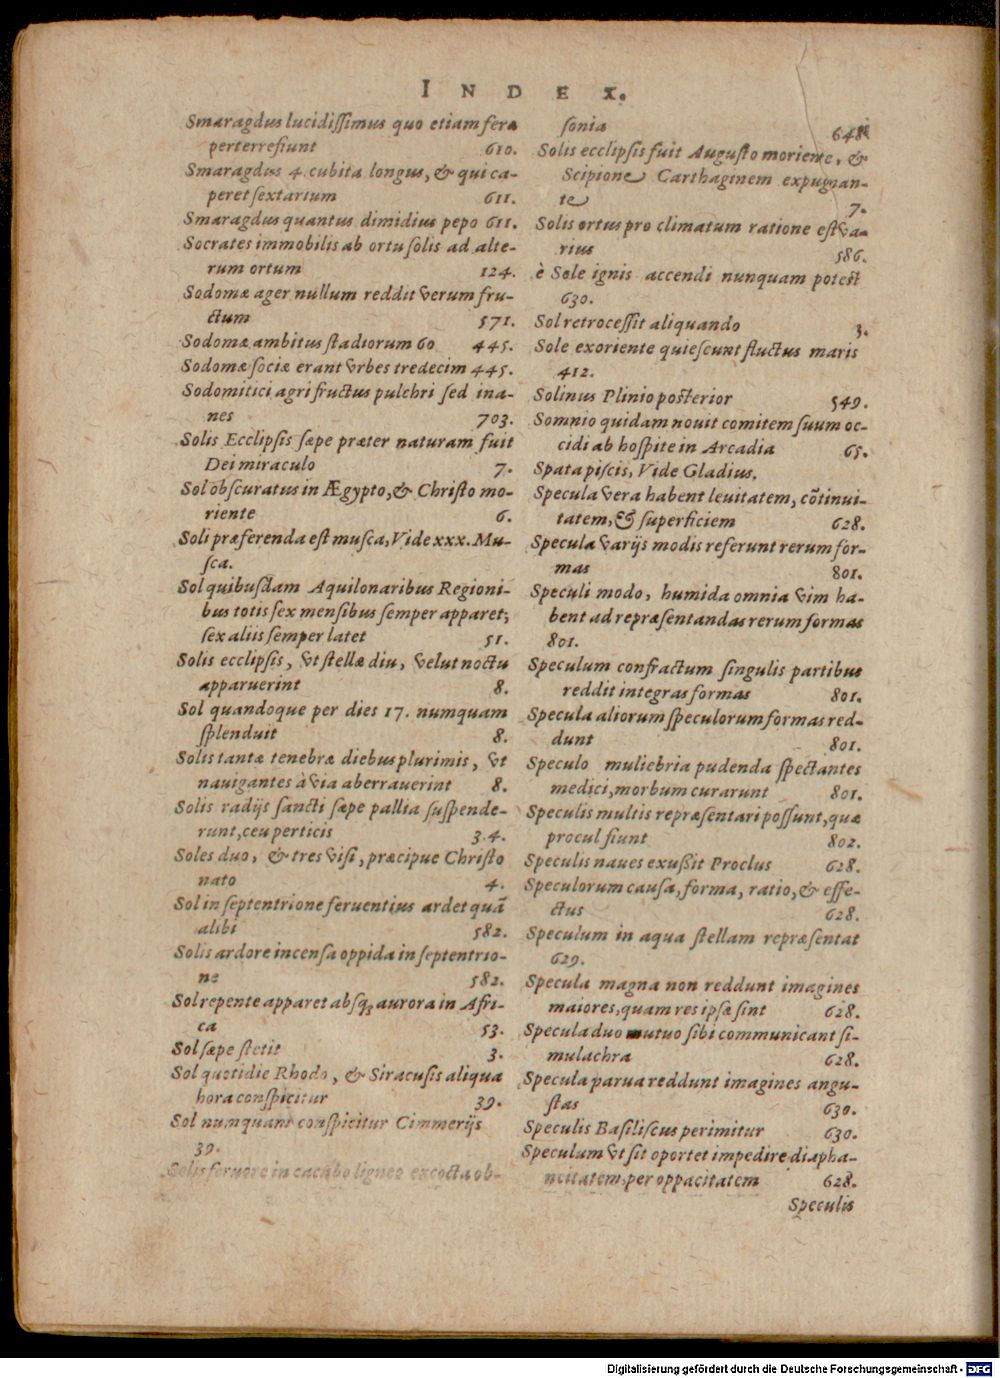 INDEX.
Smaragdus lucidiſſimus quo etiam fera
perterrefiunt 610.
Smaragdus 4. cubita longus, & qui ca-
peret ſextarium 611.
Smaragdus quantus dimidius pepo 611.
Socrates immobilis ab ortu ſolis ad alte-
rum ortum 124.
Sodomæ ager nullum reddit verum fru-
ctum 571.
Sodomæ ambitus ſtadiorum 60 445.
Sodomæ ſociæ erant vrbes tredecim 445.
Sodomitici agri fructus pulchri ſed ina-
nes 703.
Solis Ecclipſis ſæpe præter naturam fuit
Dei miraculo 7.
Sol obſcuratus in Ægypto, & Chriſto mo-
riente 6.
Soli præferenda eſt muſca, Vide xxx. Mu-
ſca.
Sol quibuſdam Aquilonaribus Regioni-
bus totis ſex menſibus ſemper apparet;
ſex aliis ſemper latet 51.
Solis ecclipſis, vt ſtellæ diu, velut noctu
apparuerint 8.
Sol quandoque per dies 17. numquam
ſplenduit 8.
Solis tantæ tenebræ diebus plurimis, vt
nauigantes à via aberrauerint 8.
Solis radijs ſancti ſæpe pallia ſuſpende-
runt, ceu perticis 3.4.
Soles duo, & tres viſi, præcipue Chriſto
nato 4.
Sol in ſeptentrione feruentius ardet quã
alibi 582.
Solis ardore incenſa oppida in ſeptentrio-
ne 582.
Sol repente apparet abſq; aurora in Afri-
ca 53.
Sol ſæpe ſtetit 3.
Sol quotidie Rhodo, & Siracuſis aliqua
hora conſpicitur 39.
Sol numquam conſpicitur Cimmerijs
39.
Solis feruore in cacabo ligneo excocta ob-
ſonia 648
Solis ecclipſis fuit Auguſto moriente, &
Scipione Carthaginem expugnan-
te 7.
Solis ortus pro climatum ratione eſt va-
rius 586.
è Sole ignis accendi nunquam poteſt
630.
Sol retroceſſit aliquando 3.
Sole exoriente quieſcunt fluctus maris
412.
Solinus Plinio poſterior 549.
Somnio quidam nouit comitem ſuum oc-
cidi ab hoſpite in Arcadia 65.
Spata piſcis, Vide Gladius.
Specula vera habent leuitatem, cõtinui-
tatem, & ſuperficiem 628.
Specula varijs modis referunt rerum for-
mas 801.
Speculi modo, humida omnia vim ha-
bent ad repræſentandas rerum formas
801.
Speculum confractum ſingulis partibus
reddit integras formas 801.
Specula aliorum ſpeculorum formas red-
dunt 801.
Speculo muliebria pudenda ſpectantes
medici, morbum curarunt 801.
Speculis multis repræſentari poſſunt, quæ
procul fiunt 802.
Speculis naues exußit Proclus 628.
Speculorum cauſa, forma, ratio, & effe-
ctus 628.
Speculum in aqua ſtellam repræſentat
629.
Specula magna non reddunt imagines
maiores, quam res ipſæ ſint 628.
Specula duo mutuo ſibi communicant ſi-
mulachra 628.
Specula parua reddunt imagines angu-
ſtas 630.
Speculis Baſiliſcus perimitur 630.
Speculum vt ſit oportet impedire diapha-
neitatem, per oppacitatem 628.
Speculis
Digitalisierung gefördert durch die Deutsche Forschungsgemeinschaft - DFG